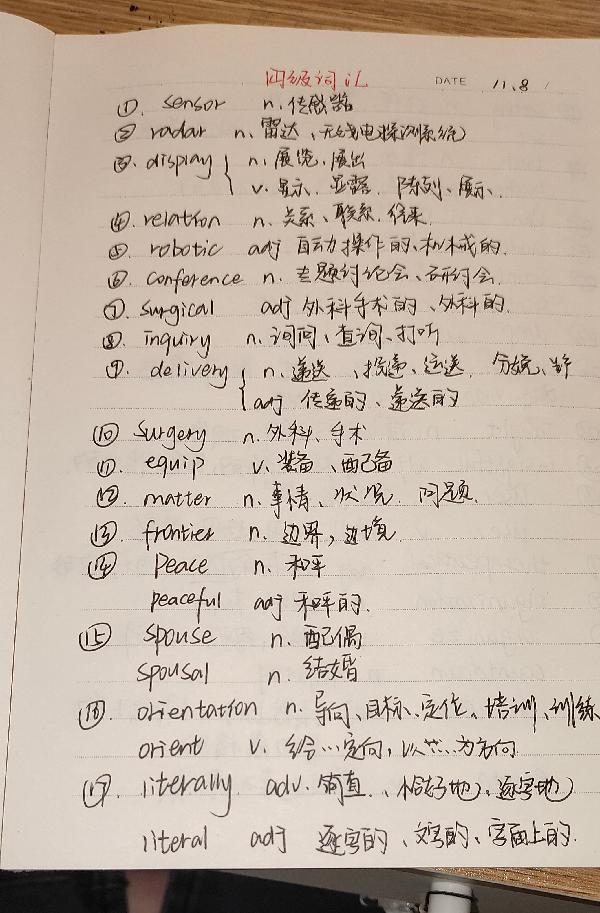 四级词汇 DATE 11.8
①. sensor n. 传感器
② radar n. 雷达、无线电探测系统
③. display n. 展览、展出
v. 显示、显露、陈列、展示.
④. relation n. 关系、联系、往来.
⑤. robotic adj 自动操作的、机械的.
⑥. conference n. 专题讨论会、研讨会.
⑦. surgical adj 外科手术的、外科的.
⑧. inquiry n. 询问、查询、打听
⑨. delivery n. 递送、投递、运送 分娩、
adj 传递的、递送的
⑩ surgery n. 外科、手术
⑪. equip v. 装备、配备
⑫. matter n. 事情、状况 问题.
⑬. frontier n. 边界, 边境
⑭ peace n. 和平
peaceful adj 和平的.
⑮ spouse n. 配偶
spousal n. 结婚
⑯. orientation n. 导向、目标、定位、培训、训练
orient v. 给…定向, 以…为方向
⑰. literally adv. 简直、恰好地、逐字地
literal adj 逐字的、文字的、字面上的.